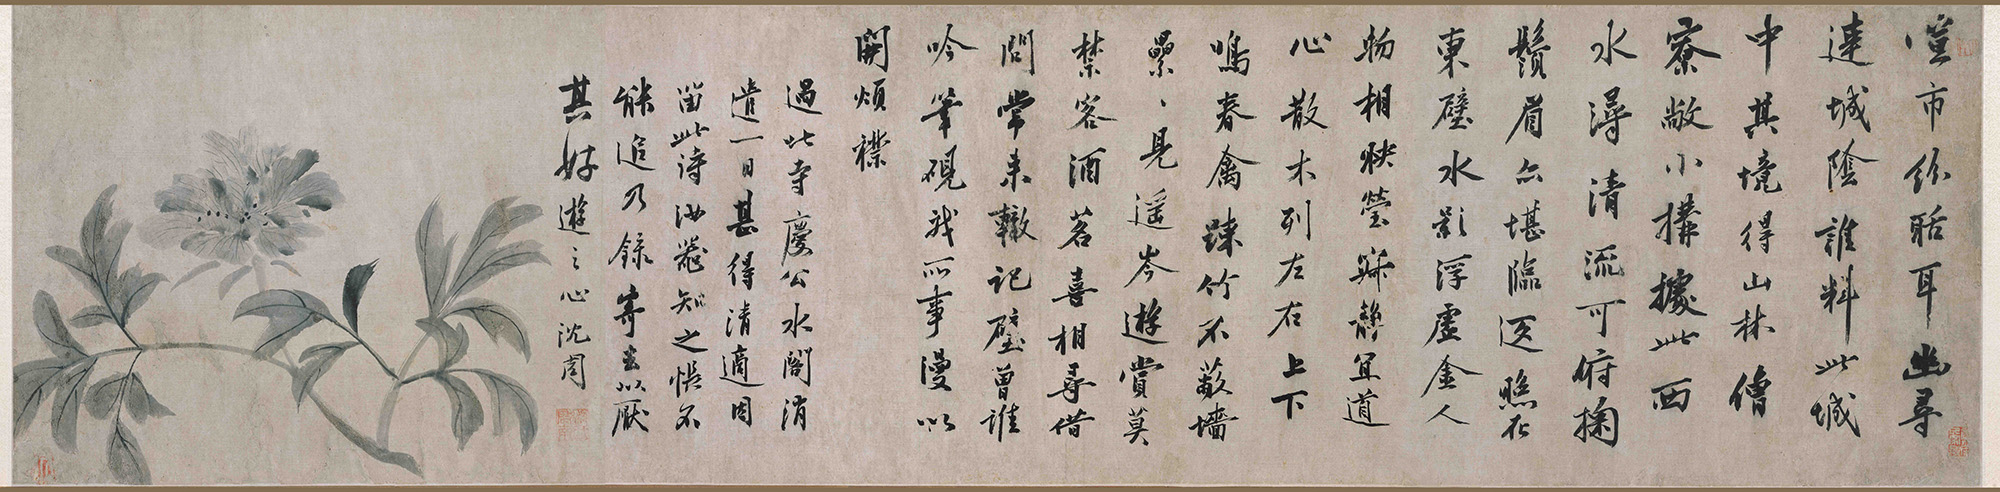 喧市紛聒耳幽尋
達城陰誰料此城
中其境得山林僧
寮敞小搆據此西
水潯清流可俯掬
鬚眉亦堪臨返照在
東壁水影浮虛金人
物相映瑩寂靜宜道
心散木列左右上下
鳴春禽疎竹不蔽墻
纍〻見遥岑遊賞莫
禁客酒茗喜相尋借
問常来轍記壁曾誰
吟筆硯我所事漫以
開煩襟
過此寺慶公水閣消
遣一日甚得清適因
留此詩汝器知之悵不
能追乃錄寄去以厭
其好遊之心沈周